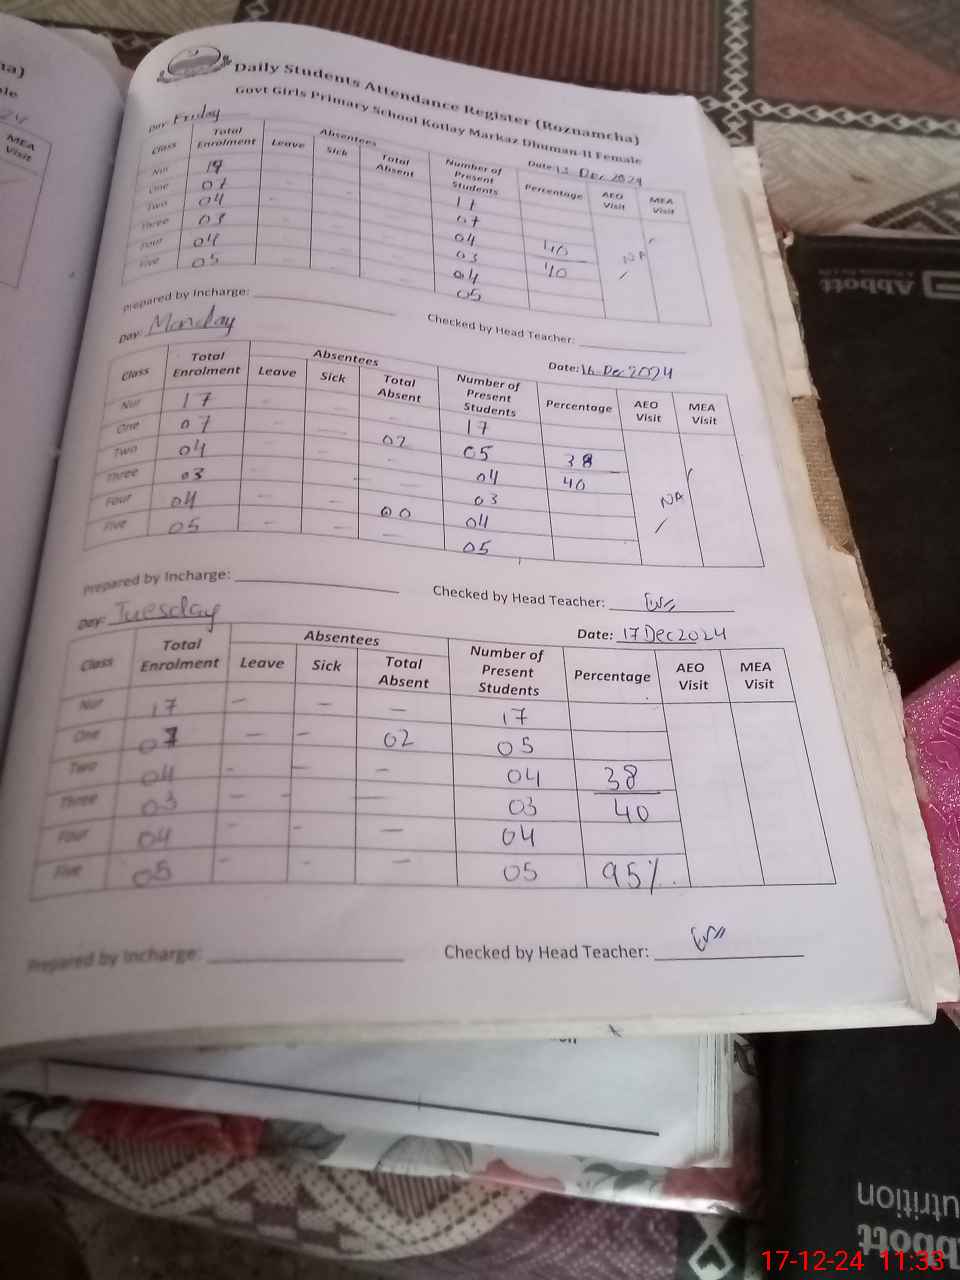 Daily Students Attendance Register (Roznamcha)
Govt Girls Primary School Kotlay Markaz Dhuman-II Female
Day: Friday Date: 13 Dec 2024
Class Total Enrolment Absentees Number of Present Students Percentage AEO Visit MEA Visit
Leave Sick Total Absent
Nur 17 17
One 07 07
Two 04 04 40
Three 03 03 40 NA
Four 04 04
Five 05 05
Prepared by Incharge: Checked by Head Teacher:
Day: Monday Date: 16 Dec 2024
Class Total Enrolment Absentees Number of Present Students Percentage AEO Visit MEA Visit
Leave Sick Total Absent
Nur 17 - - 17
One 07 - - 02 05
Two 04 - - - 04 38
Three 03 - - - 03 40 NA
Four 04 - - 00 04
Five 05 - - - 05
Prepared by Incharge: Checked by Head Teacher:
Day: Tuesday Date: 17 Dec 2024
Class Total Enrolment Absentees Number of Present Students Percentage AEO Visit MEA Visit
Leave Sick Total Absent
Nur 17 - - - 17
One 07 - - 02 05
Two 04 - - - 04 38
Three 03 - - - 03 40
Four 04 - - - 04
Five 05 - - - 05 95%
Prepared by Incharge: Checked by Head Teacher:
MEA Visit
Abbott
Abbott
17-12-24 11:33